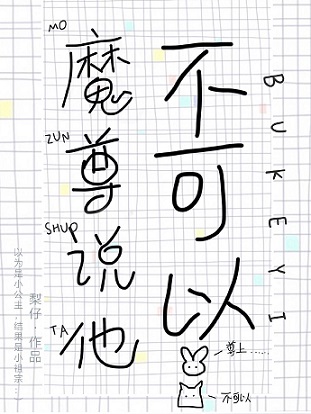 MO
魔
ZUN
尊
SHUO
说
TA
他
不
可
以
BUKEYI
梨仔·作品
以为是小公主,结果是小祖宗…
尊上……
不可以